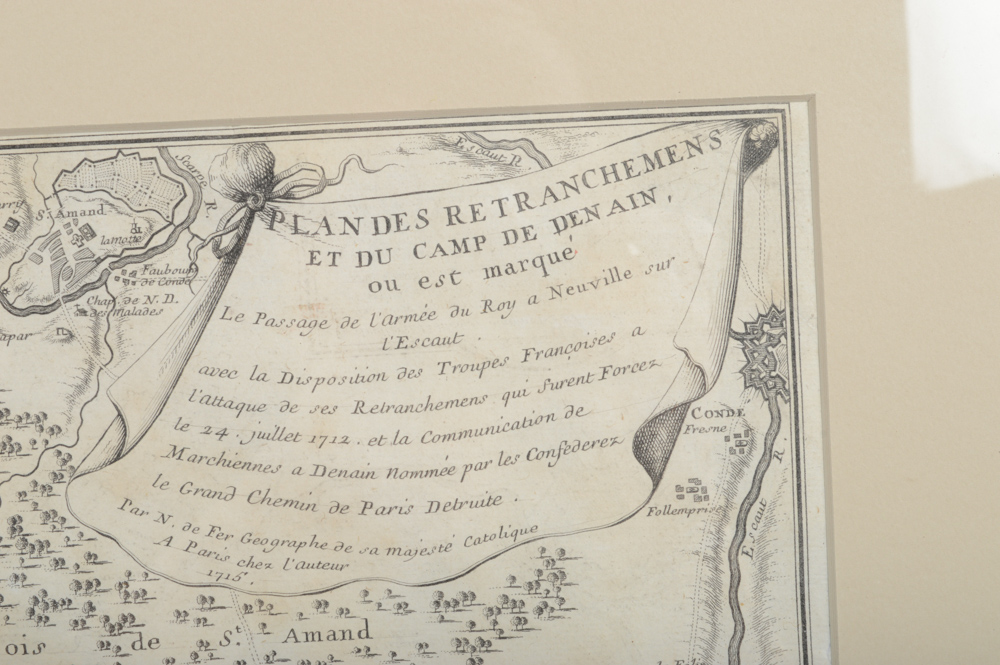 PLAN DES RETRANCHEMENS
ET DU CAMP DE DENAIN,
ou est marqué
Le Passage de l'Armée du Roy a Neuville sur
l'Escaut.
avec la Disposition des Troupes Françoises a
l'attaque de ses Retranchemens qui furent Forcez
le 24. juillet 1712. et la Communication de
Marchiennes a Denain nommée par les Confederez
le Grand Chemin de Paris Detruite.
Par N. de Fer Geographe de sa majesté Catolique
A Paris chez l'auteur
1715.
Escaut R.
Scarpe R.
St Amand
&
lamotte
Faubourg
de Condé
Chap. de N. D.
des Malades
apar
CONDE
Fresne
Follemprise
Escaut R.
ois de St. Amand